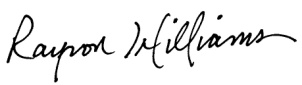 Rayron Williams